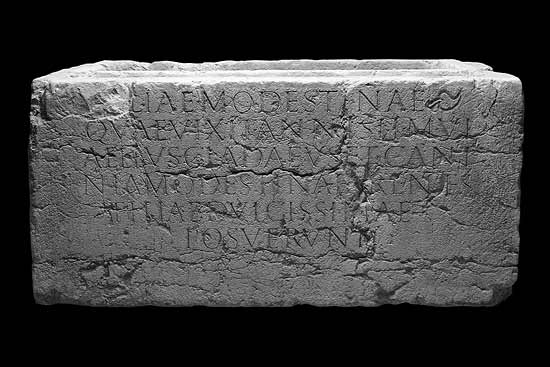 AELIAE MODESTINAE
QVAE VIXIT ANNIS II M VI
GADAEVS ET CANI
NIA MODESTINA PARENTES
FILIAE DVLCISSIMAE
POSVERVNT